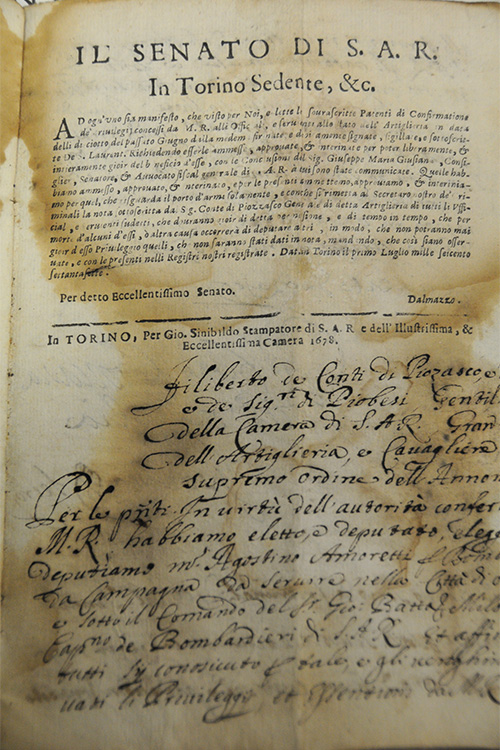 IL SENATO DI S. A. R.
In Torino Sedente, &c.
AD ogn'uno sia manifesto, che visto per Noi, e lette le sourascritte Patenti di Confirmatione
de' Priuilegij concessi da M. R. alli Offic
delli di ciotto del passato Giugno dalla medem firmate e
te De S. Laurent. Richiedendo esserle ammesse, approuate, & interinate per poter liberamente, &
intieramente gioir del b neficio d'esse, con le Conclusioni del Sig. Giuseppe Maria Giusiana Consi-
glier, Senatore, & Auuocato fiscal generale di S. A. R. a
biamo ammesso, approuato, & interinato, e per le presenti ammettemo, appruuiamo, & interinia-
mo per quel, che risguarda il porto d'armi solamente, e
minali la nota sottoscritta da Sig. Conte di Piozzasco Gen di detta Artigliaria di tutti li Uffi-
ciali, e seruienti sudetti, che douranno gioir di detta permissione, e di tempo in tempo, che per
morte d'alcuni d'essi, ò altra causa occorrerà di deputare altri, in modo, che non potranno mai
gioir d'esso Priuileggio quelli, ch non saranno stati dati in nota, mandando, che così siano osser-
uate, e con le presenti nelli Registri nostri registrate. Dat in Torino il primo Luglio mille seicento
settant
Per detto Eccellentissimo Senato.
Dalmazzo.
In TORINO, Per Gio. Sinibaldo Stampatore di S. A. R e dell' Illustrissima, &
Eccellentissima Camera 1678.
Filiberto de Conti di Piozasco, e
e de Sig.ri di Piobesi Gentil
della Camera di S. A. R. Gran
dell' Artiglieria, e Cauagliere
supremo ordine dell' Annon
Per le pñti. In virtù dell' autorità confer
M. R. habbiamo eletto, e deputato, eleg
deputiamo m.r Agostino Amoretti
da Campagna da seruire nella Città
e sotto il Comando del Sr. Gio: Batta
Cap.no de Bombardieri di S. A. R.
tutti sij conosciuto tale, e gli
di Priuileggi, et essentioni